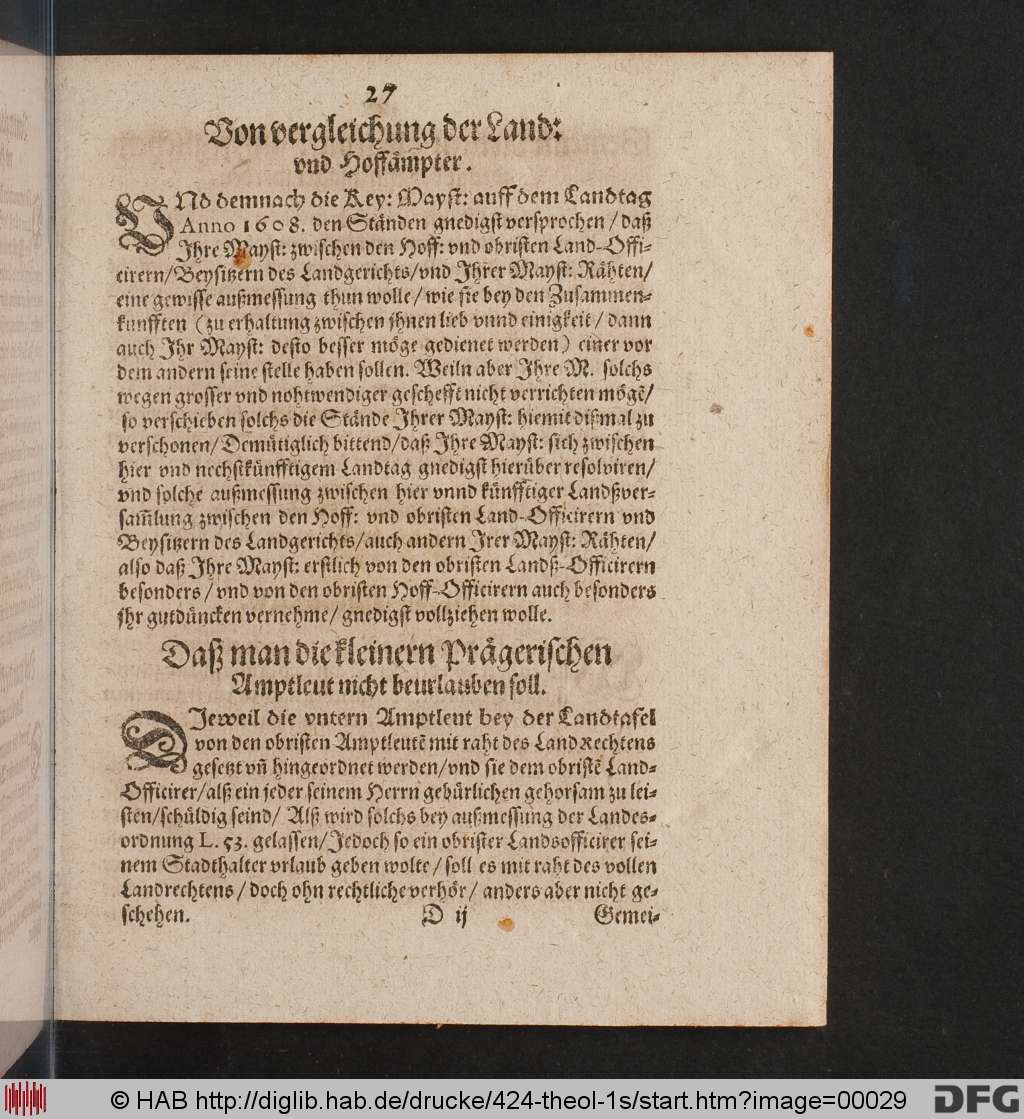 27
Von vergleichung der Land:
vnd Hoffämpter.
VNd demnach die Key: Mayst: auff dem Landtag
Anno 1608. den Ständen gnedigst versprochen / daß
Ihre Mayst: zwischen den Hoff: vnd obristen Land-Offi-
cirern/Beysitzern des Landgerichts/vnd Ihrer Mayst: Rähten/
eine gewisse außmessung thun wolle/wie sie bey den Zusammen-
kunfften (zu erhaltung zwischen jhnen lieb vnnd einigkeit / dann
auch Ihr Mayst: desto besser möge gedienet werden) einer vor
dem andern seine stelle haben sollen. Weiln aber Ihre M. solchs
wegen grosser vnd nohtwendiger geschefft nicht verrichten mögē/
so verschieben solchs die Stände Ihrer Mayst: hiemit dißmal zu
verschonen/Demütiglich bittend/daß Ihre Mayst: sich zwischen
hier vnd nechstkünfftigem Landtag gnedigst hierüber resolviren/
vnd solche außmessung zwischen hier vnnd künfftiger Landßver-
sam̃lung zwischen den Hoff: vnd obristen Land-Officirern vnd
Beysitzern des Landgerichts/auch andern Irer Mayst: Rähten/
also daß Ihre Mayst: erstlich von den obristen Landß-Officirern
besonders / vnd von den obristen Hoff-Officirern auch besonders
jhr gutdüncken vernehme/ gnedigst vollziehen wolle.
Daß man die kleinern Prägerischen
Amptleut nicht beurlauben soll.
DIeweil die vntern Amptleut bey der Landtafel
von den obristen Amptleutē mit raht des Landrechtens
gesetzt vn̄ hingeordnet werden/vnd sie dem obristē Land-
Officirer/alß ein jeder seinem Herrn gebürlichen gehorsam zu lei-
sten/schüldig seind/ Alß wird solchs bey außmessung der Landes-
ordnung L. 53. gelassen/Jedoch so ein obrister Landsofficirer sei-
nem Stadthalter vrlaub geben wolte / soll es mit raht des vollen
Landrechtens / doch ohn rechtliche verhör / anders aber nicht ge-
schehen. D ij Gemei-
© HAB http://diglib.hab.de/drucke/424-theol-1s/start.htm?image=00029
DFG